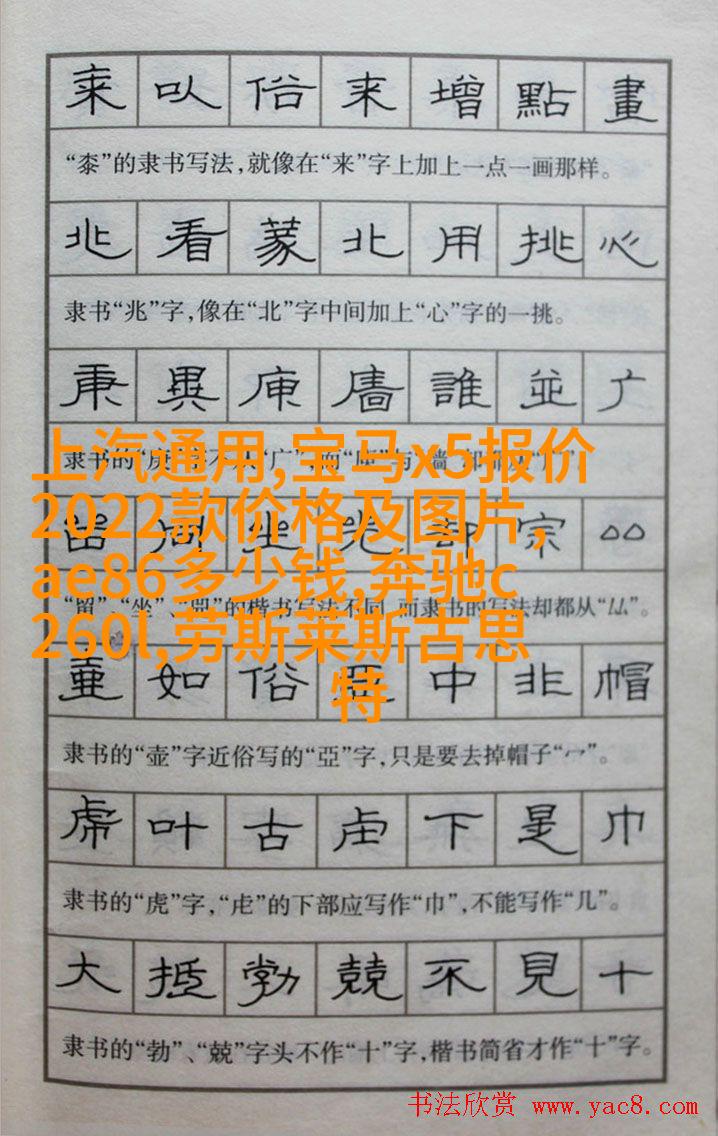 来以俗来增點畫
“桼”的隶书写法,就像在“来”字上加上一点一画那样。
兆看蒙北用挑心
隶书“兆”字,像在“北”字中间加上“心”字的一挑。
庚異庫廧誰並广
隶书的“庚”字不从“广”,而“庫”与“墙”却都从“广”。
上汽通用,宝马x5报价
2022款价格及图片,
ae86多少钱,奔驰c
260l,劳斯莱斯古思
特
坐 却宗
“留”、“坐”、“兜”的楷书写法不同,而隶书的写法却都从“厸”。
壷如俗亞中非帽
隶书的“壶”字近俗写的“亞”字,只是要去掉帽子“冖”。
虎叶古虍下是巾
隶书的“虎”字,“虍”的下部应写作“巾”,不能写作“几”。
大抵勃兢不見十
隶书的“勃”、“兢”字头不作“十”字,楷书简省才作“十”字。
书法欣赏 www.yac8.com